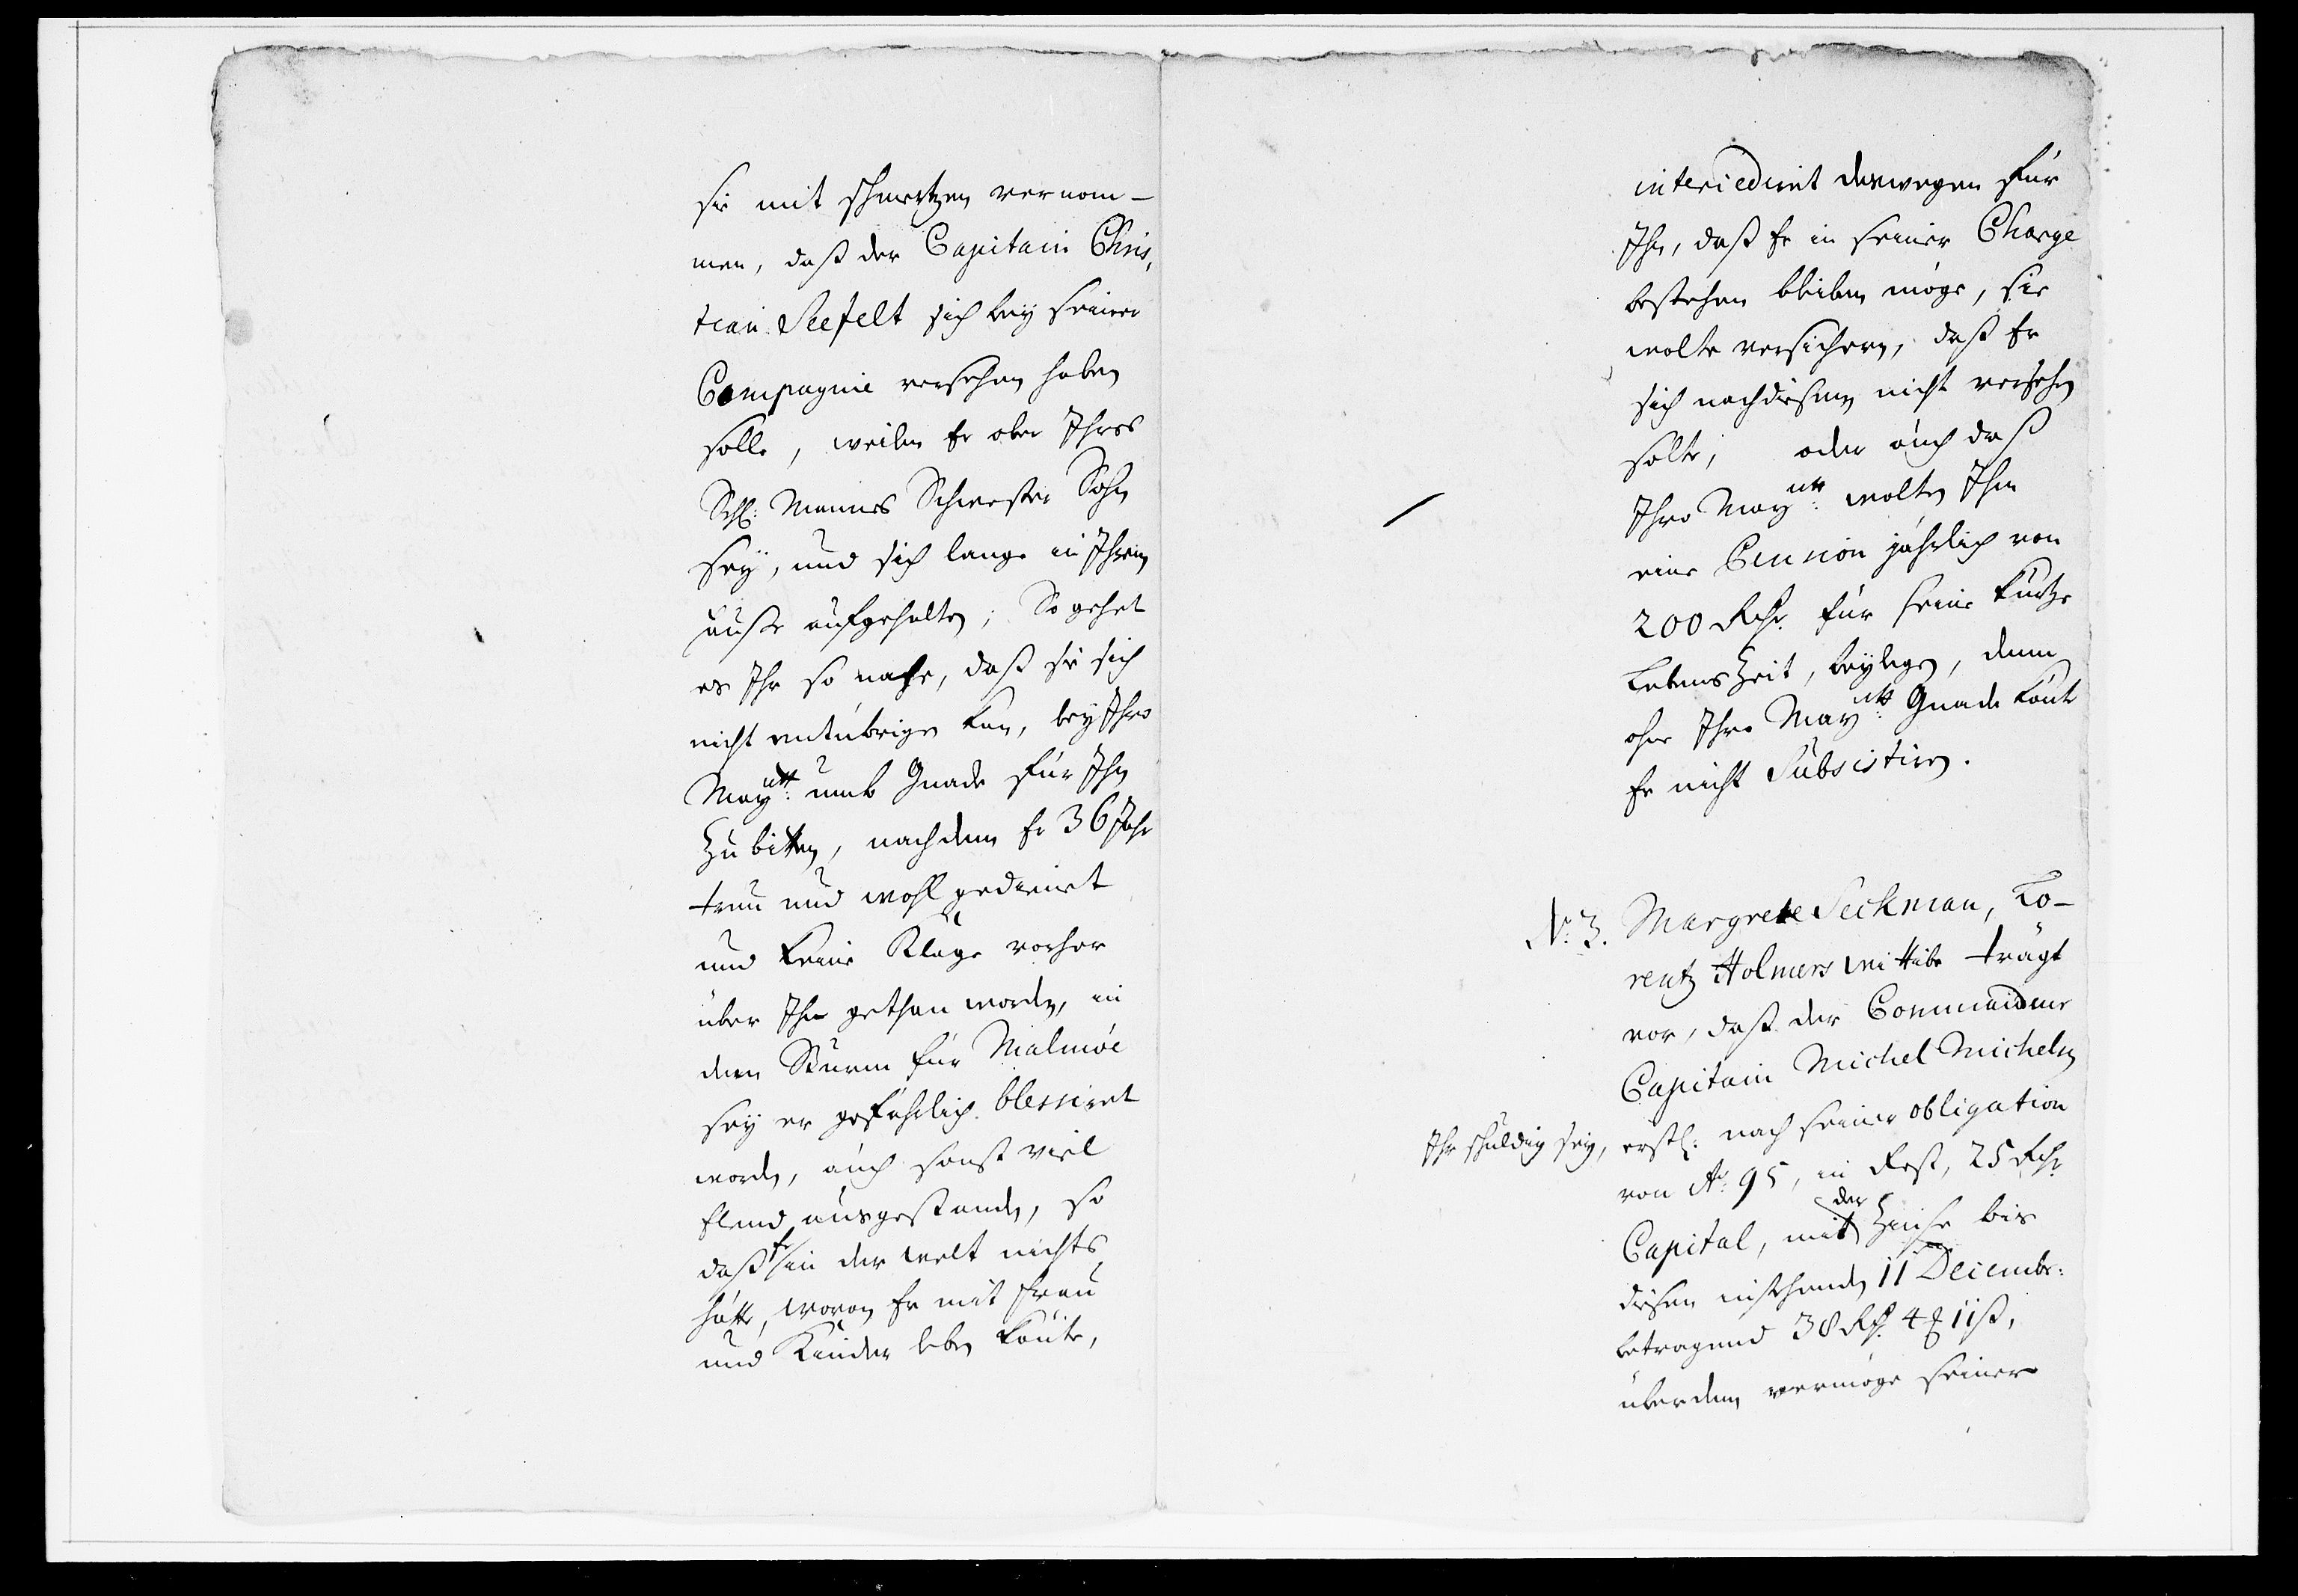 sie mit schmertzen vernom-
men, daß der Capitain Chris,
tian Seefelt sich bey seiner
Compagnie versehen haben
solle, weilen Er aber Ihres
Sehl: Mannes Schwester Sohn
sey, und sich lange in Ihrem
Hause aufgehalten; So gehet
es Ihr so nahe, daß sie sich
nicht entübrigen kan, bey Ihro
Maytt: umb Gnade für Ihn
zu bitten, nachdem Er 36 Jahr
treu und wohl gedienet
und keine Klage vorher
über Ihn gethan worden, in
dem Sturm für Malmöe
sey er gefährlich blessiret
worden, auch sonst viel
Elend ausgestanden, so
daß Er in der Welt nichts
hätte, wovon Er mit Frau
und Kinder leben könte,
intercediret deswegen für
Ihn, daß Er in seiner Charge
bestehen bleiben möge, sie
wolte versichern, daß Er
sich nachdiesem nicht versehen
solte; oder auch daß
Ihro Maytt: wolten Ihm
eine Pension jährlich von
200 Rthr. für seine kurtze
Lebens Zeit, beylegen, denn
ohne Ihro Maytt: Gnade könte
Er nicht Subsistiren.
No. 3. Margrete Seekman, Lo-
rentz Holmers Wittibe trägt
vor, daß der Commandeur
Capitain Michel Michelsen
Ihr schuldig sey, erstl: nach seiner obligation
von Ao. 95, in Rest, 25 Rthr
Capital, mit der Zinse bis
diesen instehenden 11 Decembr:
betragend 38 Rthr. 4 ꝑ 11 ß,
überdem vermöge seiner